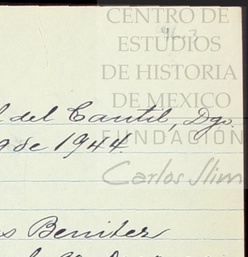 CENTRO DE
ESTUDIOS
DE HISTORIA
DE MEXICO
FUNDACIÓN
Carlos Slim
del Cantil, Dgo.
de 1944
Benitez